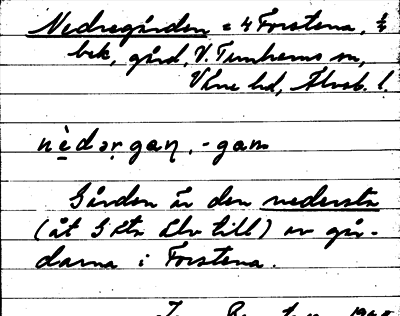 Nedregården = 4 Forstena, ½
bek, gård, V. Tunhems sn,
Väne hd, Älvsb. l.
nèdərgaṇ, -gam
Gården är den nedersta
(åt Göta älv till) av går-
darna i Forstena.